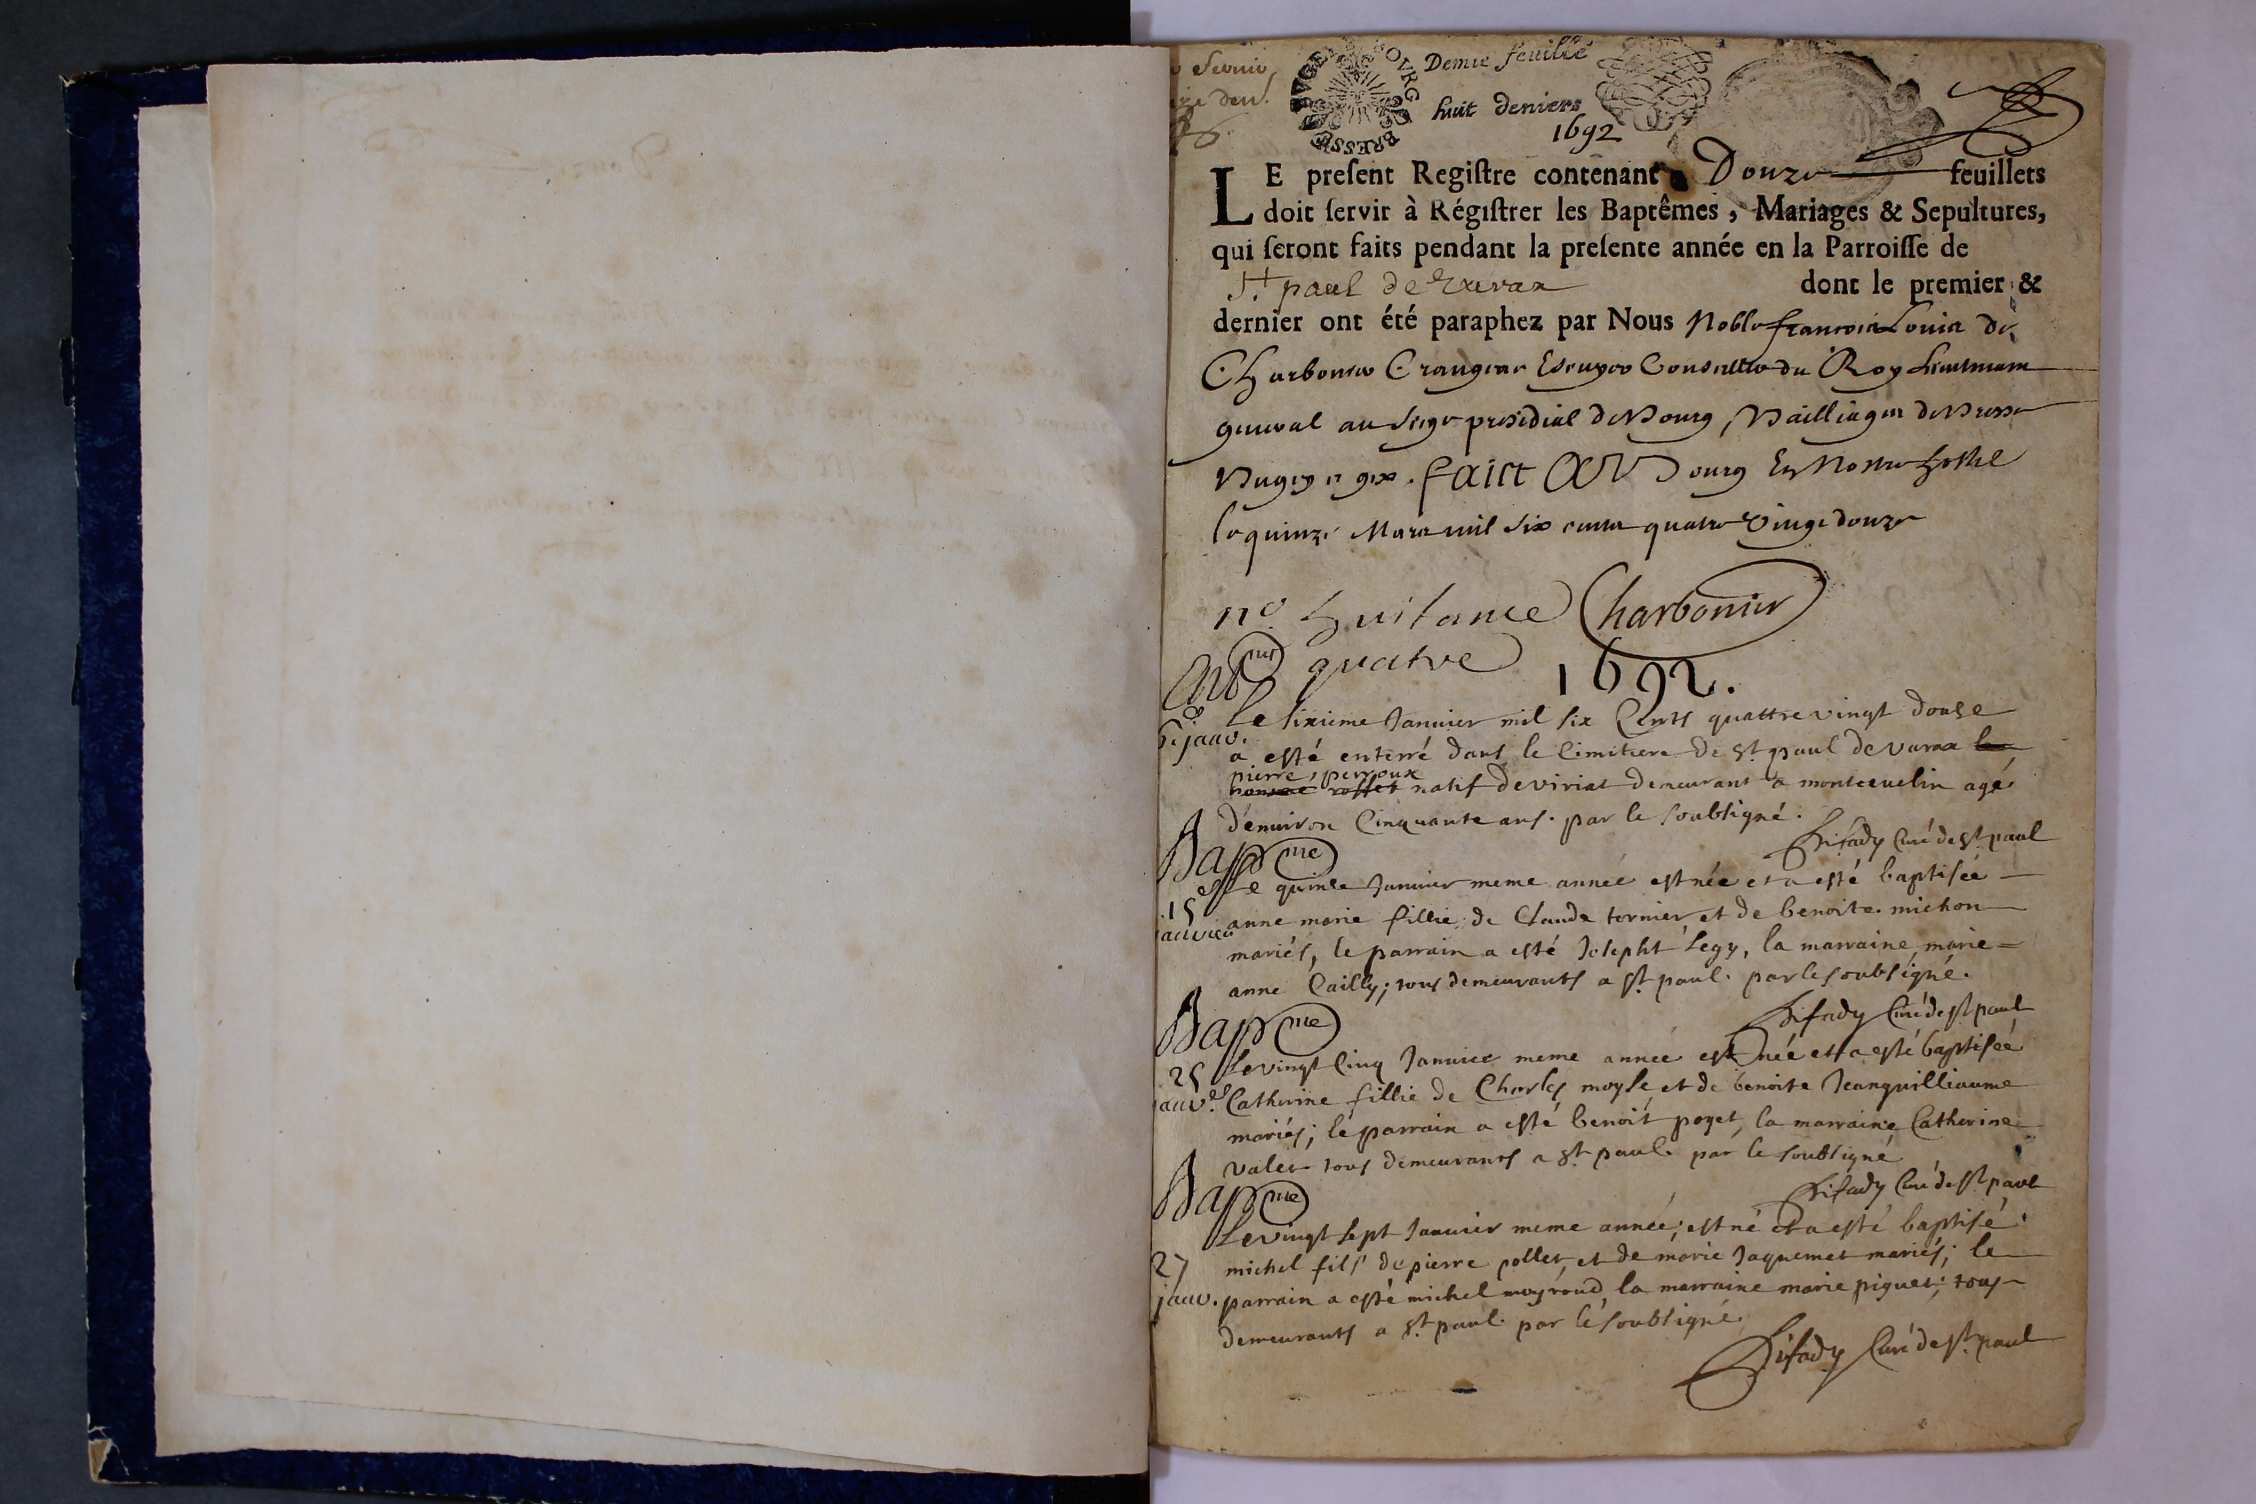 Demie feuille
BOURG BRESSE BUGEY
huit deniers
1692
LE preſent Regiſtre contenant Douze feuillets
doit ſervir à Régiſtrer les Baptêmes, Mariages & Sepultures,
qui ſeront faits pendant la preſente année en la Parroiſſe de
St. paul de Varax dont le premier &
dernier ont été paraphez par Nous Noble francois Louis de
Charbonier Crangeac Escuyer Conseiller du Roy Lieutenant
general au siege presidial de Bourg, Bailliages de Bresse
Bugey et gex. faict A Bourg En Nostre hostel
le quinze Mars mil six cents quatre vingt douze
Charbonier
quatre
1692.
6e. janv. Le sixieme Janvier mil six Cents quattre vingt douse
a esté enterré dans le Cimitiere de st. paul de varax
pierre perroux
natif de viriat demeurant a montcevelin agé
d'environ Cinquante ans. par le soubsigné.
Curé de st. paul
Bapme
Le quinse Janvier meme année est née et a esté baptisée
15 janvier anne marie fillie de Claude tornier et de benoite michon
mariés, le parrain a esté Josepht Legy, la marraine marie
anne Cailly; tous demeurants a st. paul. par le soubsigné.
Curé de st. paul
Bapme
Le vingt Cinq Janvier meme année est née et a esté baptisée
25 janver Catherine fillie de Charles moyse et de benoite Jeanguilliaume
mariés; le parrain a esté benoit poget, la marraine Catherine
valet tous demeurants a st. paul. par le soubsigné
Curé de st. paul
Bapme
Le vingt sept Janvier meme année; est né et a esté baptisé
27 michel fils de pierre pollet, et de marie Jaquemet mariés; le
janv. parrain a esté michel moyroud, la marraine marie piquet; tous
demeurants a st. paul. par le soubsigné.
Curé de st. paul